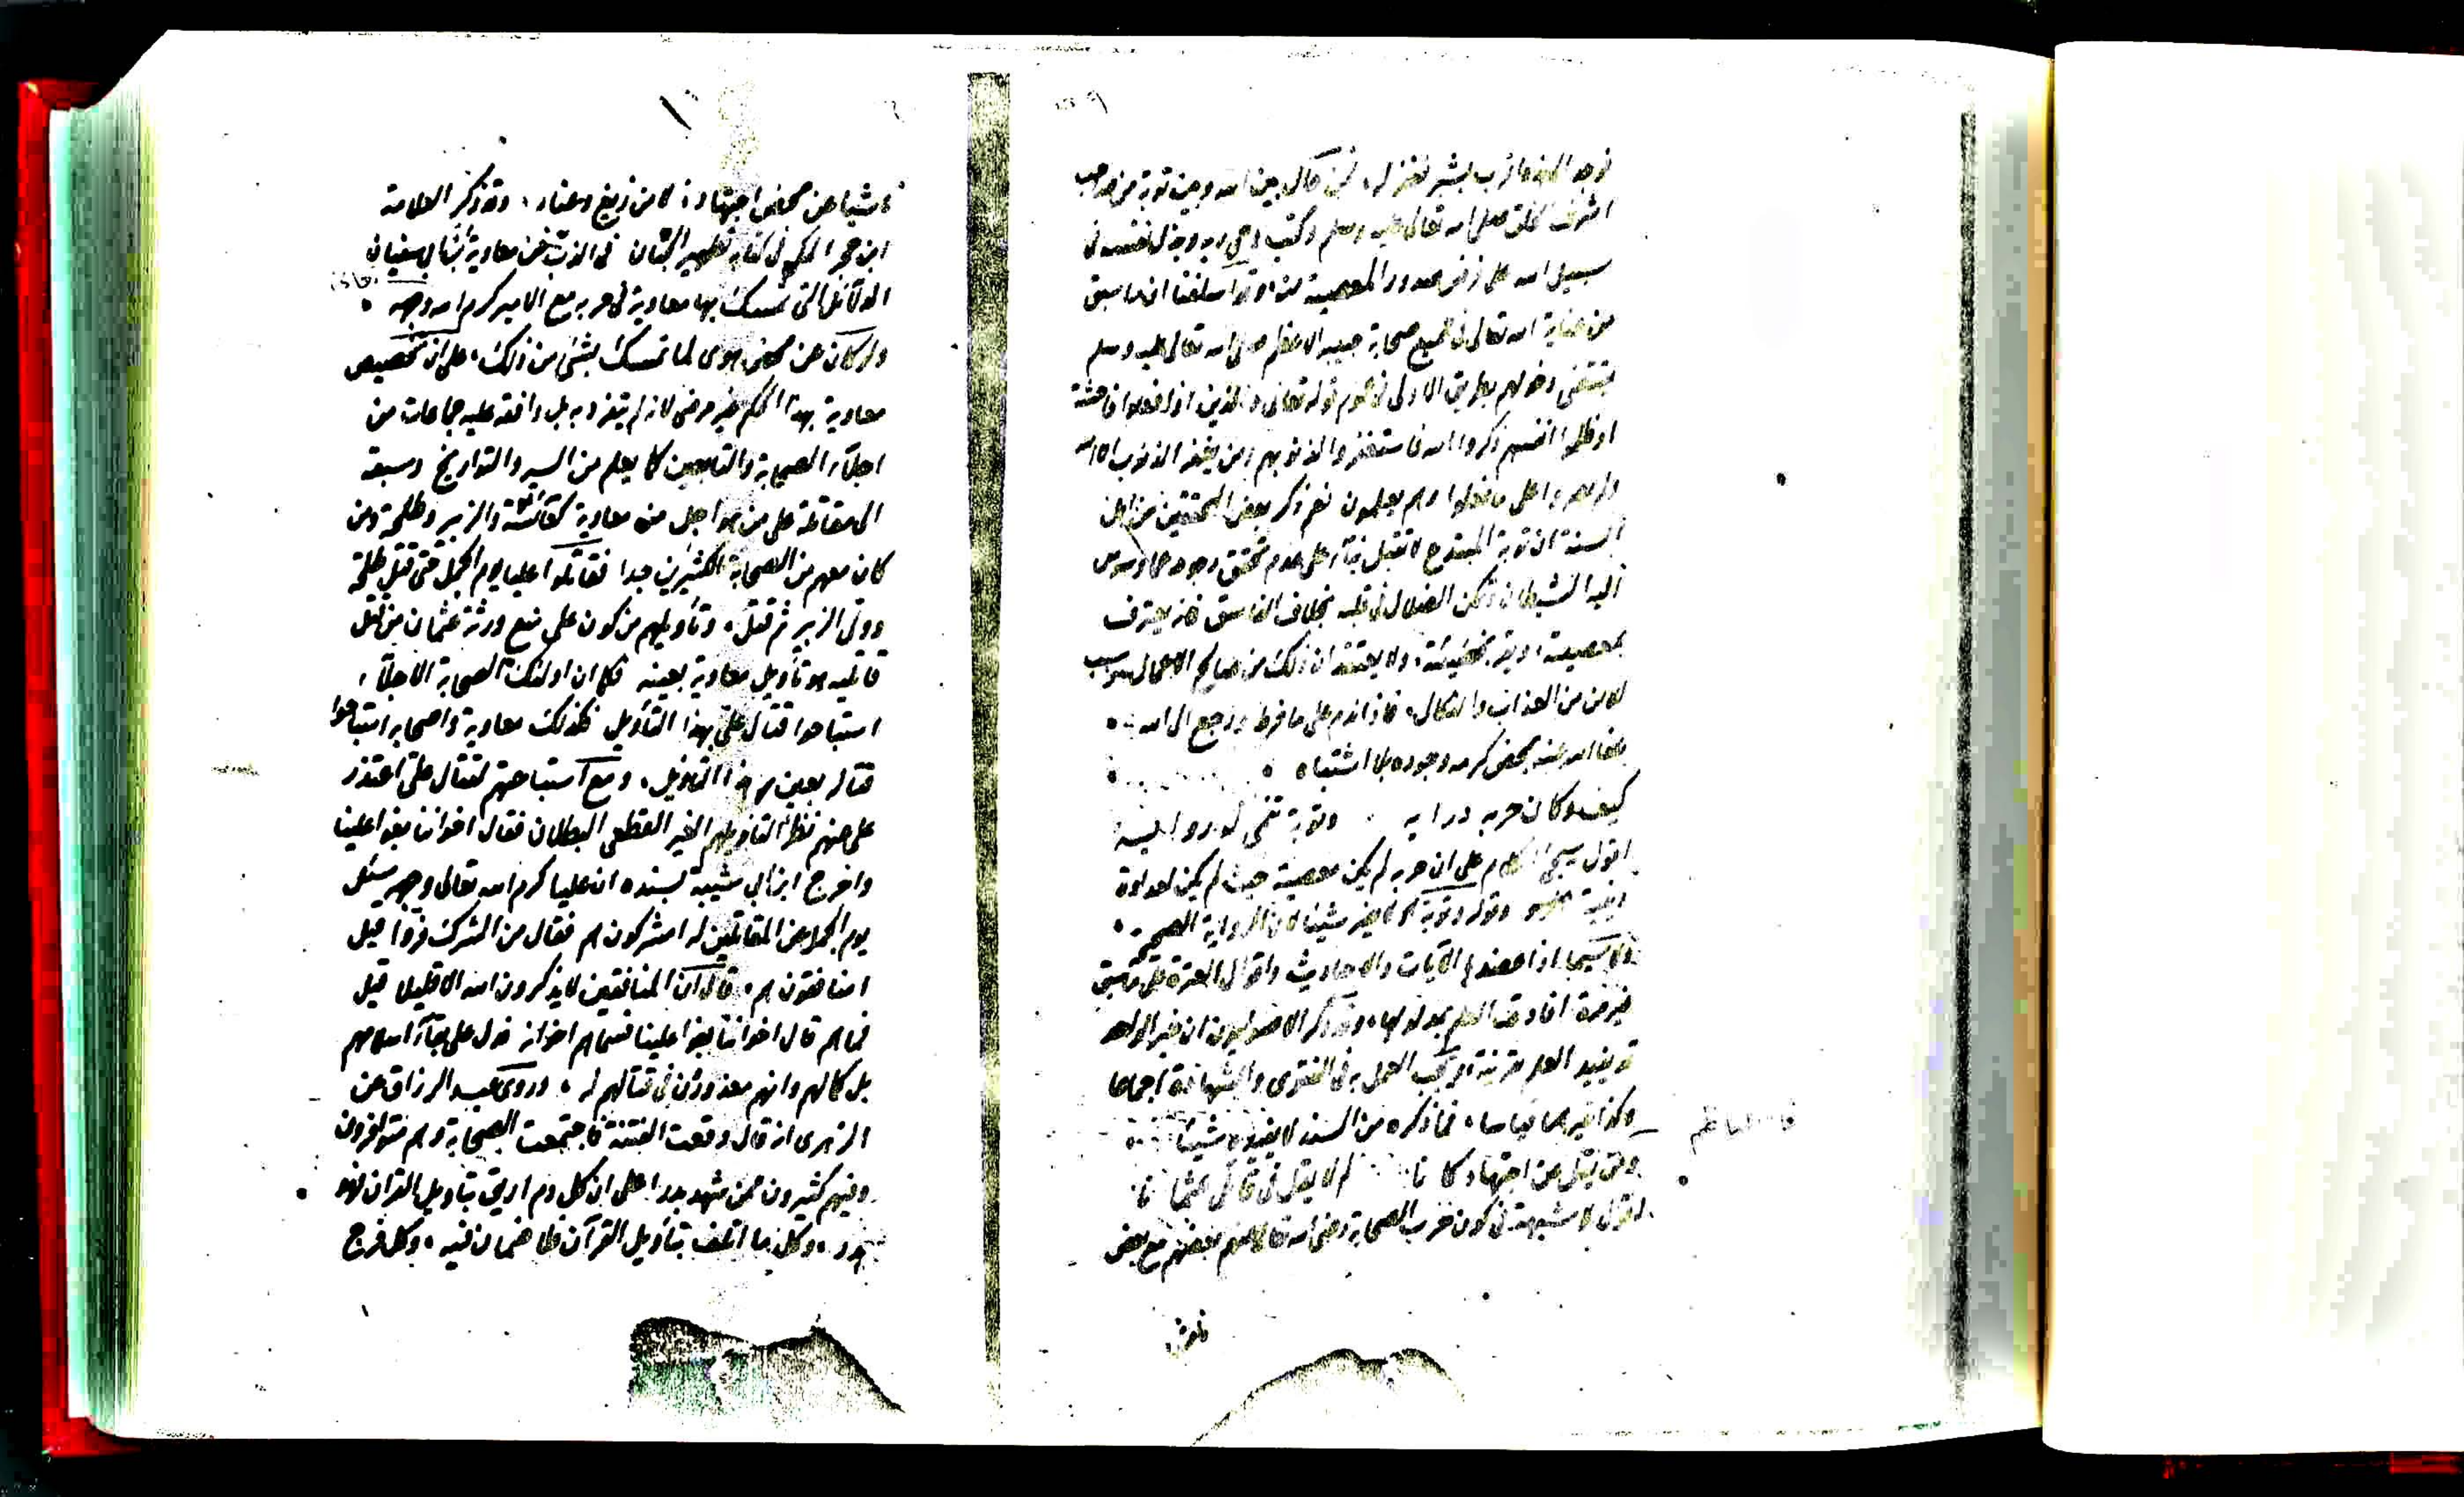 توجه اليه ما قرب بشبر فغفر له، فمن حال بين الله وبين توبة من صاحب
اشرف الخلق صلى الله تعالى عليه وسلم وكتب وحي ربه وبذل نفسه في
سبيل الله على فرض صدور المعصية منه، وقد اسلفنا ان ما سبق
من عناية الله تعالى في جميع صحابة حبيبه الاعظم صلى الله تعالى عليه وسلم
يقتضي دخولهم بطريق الاولى في عموم قوله تعالى والذين اذا فعلوا فاحشة
او ظلموا انفسهم ذكروا الله فاستغفروا لذنوبهم ومن يغفر الذنوب الا الله
ولم يصروا على ما فعلوا وهم يعلمون نعم ذكر بعض المحققين من اهل
السنة ان توبة المبتدع لا تقبل بناء على عدم تحقق رجوعه عما وسوس
اليه الشيطان وتمكن الضلال في قلبه بخلاف الفاسق فانه يعترف
بمعصيته، ويقر بخطيئته، ولا يعتقد ان ذلك من صالح الاعمال
من العذاب والنكال، فاذا ندم على ما فرط ورجع الى الله
عفا الله عنه بمحض كرمه وجوده بلا اشتباه
كيف وكان حربه درايه وتوبة تنمى له روايه
اقول سيجئ الكلام على ان حربه لم يكن معصية حيث لم يكن لعداوة
وقوله وتوبة لا يضير شيئا لان الرواية الصحيحة
ولا سيما اذا عضدها الآيات والاحاديث واقوال العترة على ما سبق
غير مرة افادت العلم بمدلولها، وقد ذكر الاصوليون ان خبر الواحد
قد يفيد العلم بقرينة او يجب العمل به في الفتوى والشهادة اجماعا
وكذا غيرهما قياسا، فما ذكره من السند لا يفيده شيئا
قال الناظم
ومن يقل عن اجتهاد كانا لم لا يقل في قاتلي عثمانا
اقول لا شبهة في كون حرب الصحابة رضي الله تعالى عنهم بعضهم مع بعض
ناش
ناشيا عن محض اجتهاد، لا من زيغ وعناد، وقد ذكر العلامة
ابن حجر المكي في كتابه تطهير الجنان في الذب عن معاوية بن ابي سفيان
الدلائل التي تمسك بها معاوية في حربه مع الامير كرم الله وجهه
ولو كان عن محض هوى لما تمسك بشئ من ذلك، على ان تخصيص
معاوية بهذا الحكم غير مرضي لانه لم يتفرد به بل وافقه عليه جماعات من
اجلاء الصحابة والتابعين كما يعلم من السير والتواريخ وسبقه
الى مقاتلة علي من هو اجل من معاوية كعائشة والزبير وطلحة ومن
كان معهم من الصحابة الكثيرين جدا فقاتلوا عليا يوم الجمل حتى قتل طلحة
وولى الزبير ثم قتل، وتأويلهم من كون علي منع ورثة عثمان من قتل
قاتليه هو تأويل معاوية بعينه فكما ان اولئك الصحابة الاجلاء
استباحوا قتال علي بهذا التأويل فكذلك معاوية واصحابه استباحوا
قتاله بعين هذا التأويل، ومع استباحتهم لقتال علي اعتذر
علي عنهم نظرا لتأويلهم الغير القطعي البطلان فقال اخواننا بغوا علينا
واخرج ابن ابي شيبة بسنده ان عليا كرم الله تعالى وجهه سئل
يوم الجمل عن المقاتلين له امشركون هم فقال من الشرك فروا قيل
امنافقون هم، قال ان المنافقين لا يذكرون الله الا قليلا قيل
فما هم قال اخواننا بغوا علينا فسماهم اخوانه فدل على بقاء اسلامهم
بل كمالهم وانهم معذورون في قتالهم له، وروى عبد الرزاق عن
الزهري انه قال وقعت الفتنة فاجتمعت الصحابة وهم متوافرون
وفيهم كثيرون ممن شهد بدرا على ان كل دم اريق بتأويل القرآن فهو
هدر، وكل ما اتلف بتأويل القرآن فلا ضمان فيه، وكل فرج